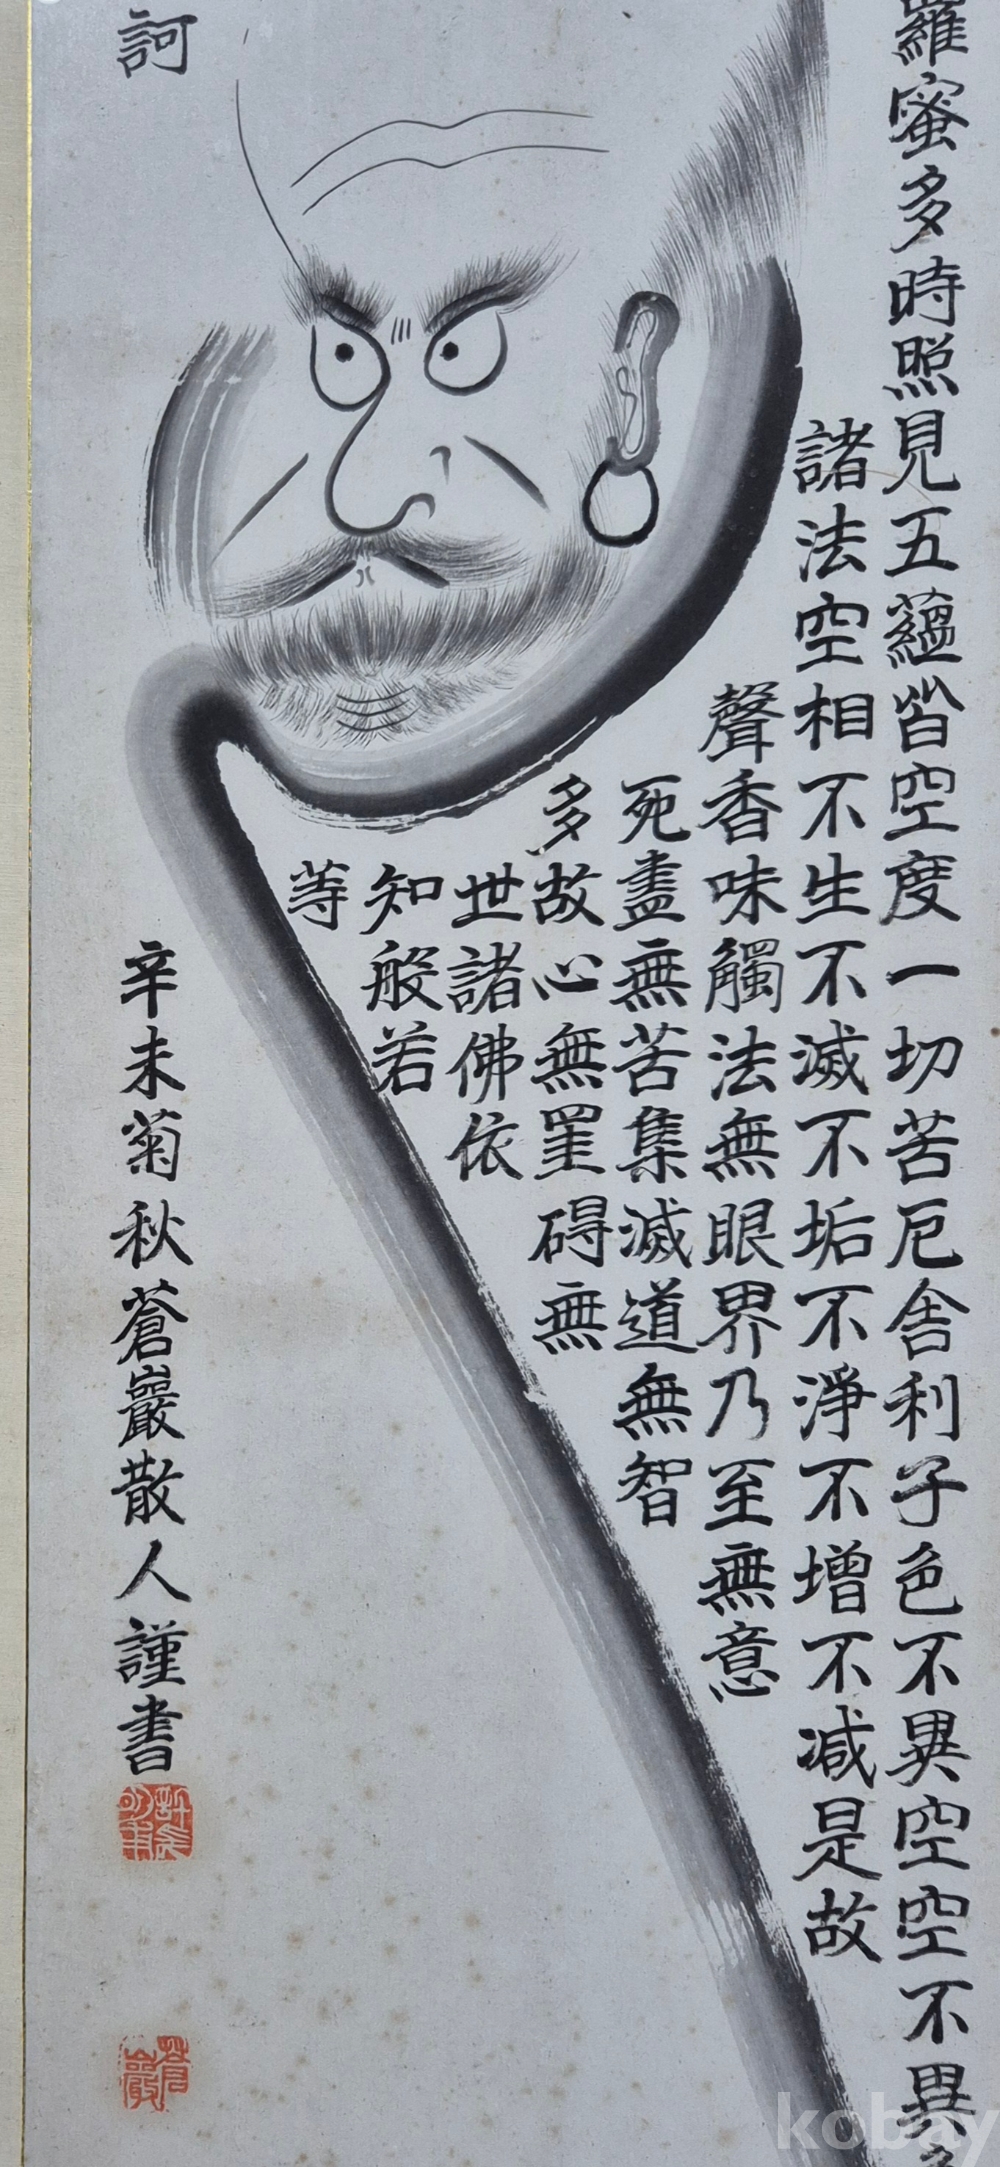 羅蜜多時照見五蘊皆空度一切苦厄舍利子色不異空空不異
諸法空相不生不滅不垢不淨不增不減是故
聲香味觸法無眼界乃至無意
死盡無苦集滅道無智
多故心無罣碍無
世諸佛依
知般若
等
訶
辛未菊秋蒼巖散人謹書
蒼巖
kobay